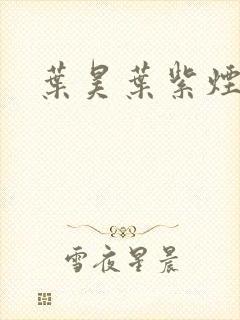 葉昊葉紫煙
雪夜星晨